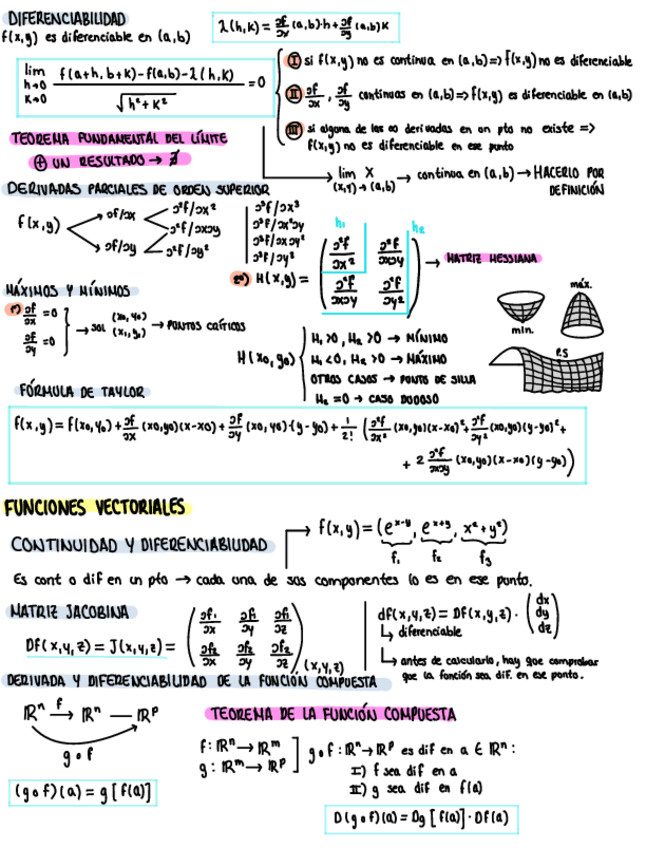 DIFERENCIABILIDAD
f(x,y) es diferenciable en (a,b)
λ(h,k) = ∂f/∂x (a,b)·h + ∂f/∂y (a,b)k
lim h→0 k→0 (f(a+h, b+k) - f(a,b) - λ(h,k)) / √(h²+k²) = 0
I si f(x,y) no es continua en (a,b) => f(x,y) no es diferenciable
II ∂f/∂x, ∂f/∂y continuas en (a,b) => f(x,y) es diferenciable en (a,b)
III si alguna de las ∞ derivadas en un pto no existe =>
f(x,y) no es diferenciable en ese punto
TEOREMA FUNDAMENTAL DEL LÍMITE
⊕ UN RESULTADO → ∄
lim (x,y)→(a,b) X → continua en (a,b) → HACERLO POR
DEFINICIÓN
DERIVADAS PARCIALES DE ORDEN SUPERIOR
f(x,y)
∂f/∂x
∂²f/∂x²
∂²f/∂x∂y
∂f/∂y
∂²f/∂y²
∂³f/∂x³
∂³f/∂x²∂y
∂³f/∂x∂y²
∂³f/∂y³
h₁
h₂
2º) H(x,y) = ( ∂²f/∂x² ∂²f/∂x∂y
∂²f/∂x∂y ∂²f/∂y² ) → MATRIZ HESSIANA
MÁXIMOS Y MÍNIMOS
1º) ∂f/∂x = 0
∂f/∂y = 0
→ SOL (x₀, y₀)
(x₁, y₁) → PUNTOS CRÍTICOS
H(x₀,y₀)
H₁>0, H₂>0 → MÍNIMO
H₁<0, H₂>0 → MÁXIMO
OTROS CASOS → PUNTO DE SILLA
H₂=0 → CASO DUDOSO
mín.
máx.
P.S
FÓRMULA DE TAYLOR
f(x,y) = f(x₀,y₀) + ∂f/∂x (x₀,y₀)(x-x₀) + ∂f/∂y (x₀,y₀)·(y-y₀) + 1/2! (∂²f/∂x² (x₀,y₀)(x-x₀)² + ∂²f/∂y² (x₀,y₀)(y-y₀)² +
+ 2 ∂²f/∂x∂y (x₀,y₀)(x-x₀)(y-y₀))
FUNCIONES VECTORIALES
CONTINUIDAD Y DIFERENCIABILIDAD
→ f(x,y) = (e^(x-y), e^(x+y), x²+y²)
f₁ f₂ f₃
Es cont o dif en un pto → cada una de sus componentes lo es en ese punto.
MATRIZ JACOBINA
Df(x,y,z) = J(x,y,z) = ( ∂f₁/∂x ∂f₁/∂y ∂f₁/∂z
∂f₂/∂x ∂f₂/∂y ∂f₂/∂z ) (x,y,z)
df(x,y,z) = Df(x,y,z) · ( dx
dy
dz )
↳ diferenciable
↳ antes de calcularlo, hay que comprobar
que la función sea dif. en ese punto.
DERIVADA Y DIFERENCIABILIDAD DE LA FUNCIÓN COMPUESTA
ℝⁿ f→ ℝⁿ — ℝᵖ
g∘f
(g∘f)(a) = g[f(a)]
TEOREMA DE LA FUNCIÓN COMPUESTA
f: ℝⁿ → ℝᵐ
g: ℝᵐ → ℝᵖ
g∘f : ℝⁿ → ℝᵖ es dif en a ∈ ℝⁿ:
I) f sea dif en a
II) g sea dif en f(a)
D(g∘f)(a) = Dg[f(a)]·Df(a)